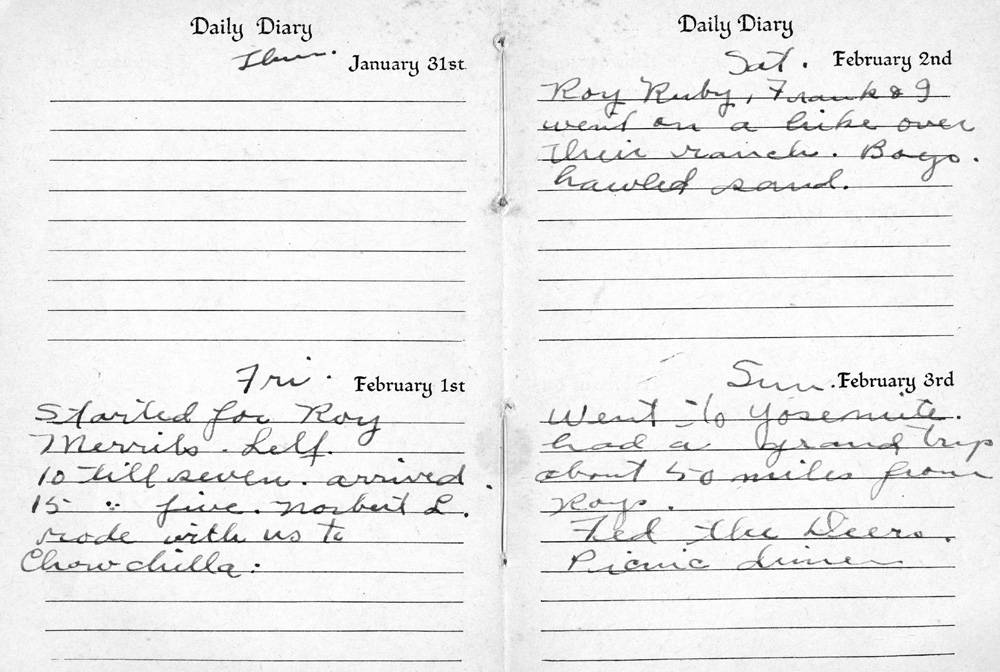 Daily Diary
Thur. January 31st
Fri. February 1st
Started for Roy
Merribs. Left.
10 till seven. arrived
15 " five. Norbert L.
rode with us to
Chowchilla:
Daily Diary
Sat. February 2nd
Roy Ruby, Frank & I
went on a hike over
their ranch. Boys.
hawled sand.
Sun. February 3rd
Went to Yosemite.
had a grand trip
about 50 miles from
Roys.
Fed the Deers.
Picnic dinner